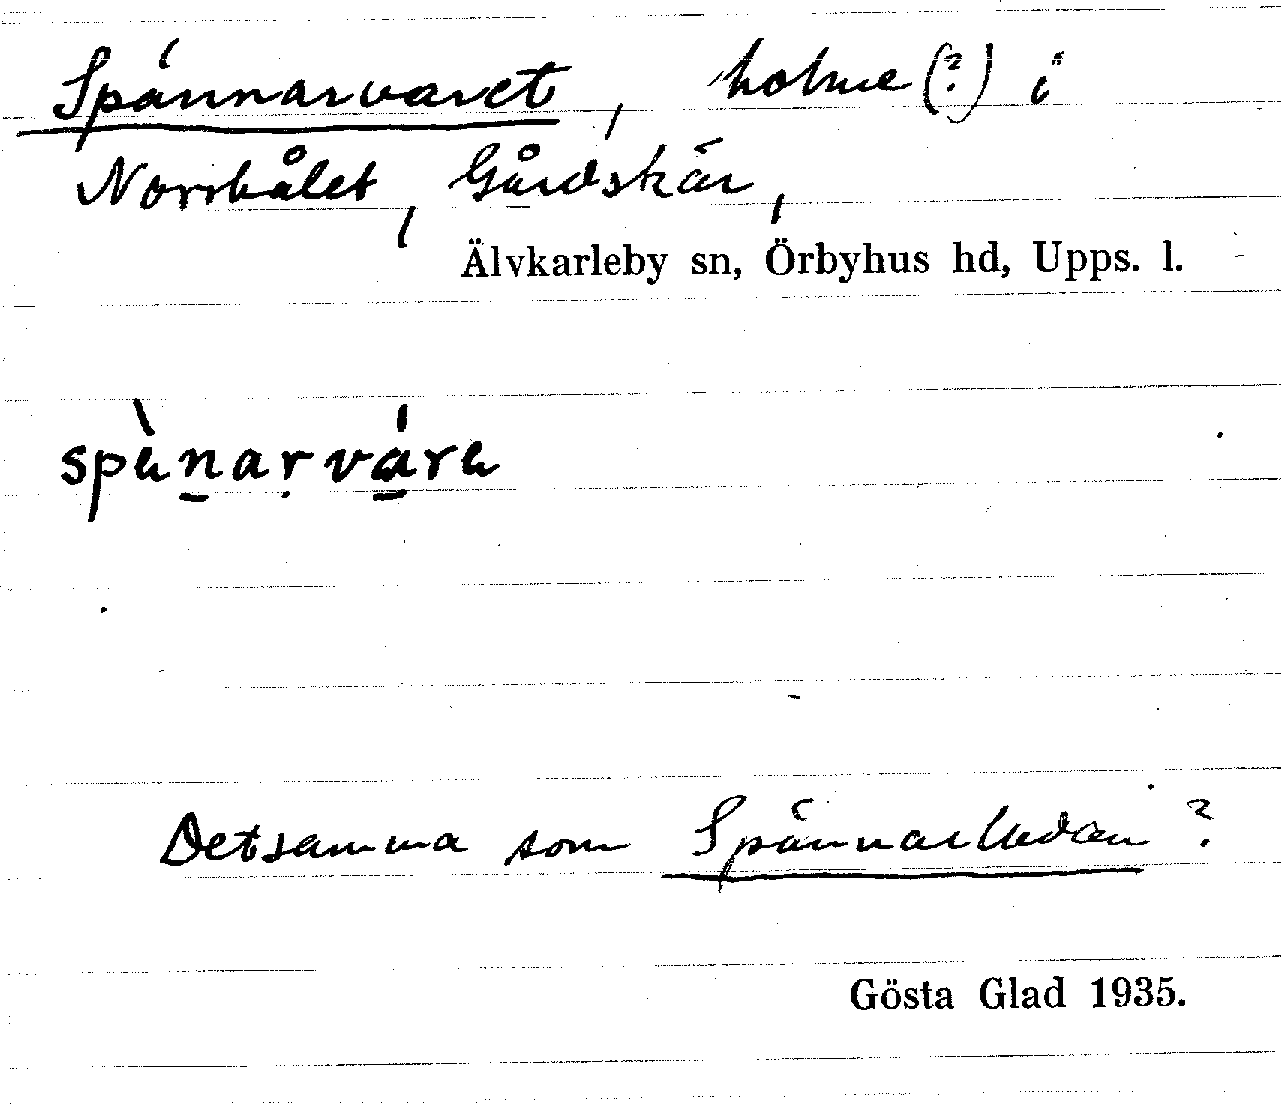 Spännarvaret, holme (?) i
Norrhålet, Gårdskär,
Älvkarleby sn, Örbyhus hd, Upps. l.
spànarváre
Detsamma som Spännarludan?
Gösta Glad 1935.